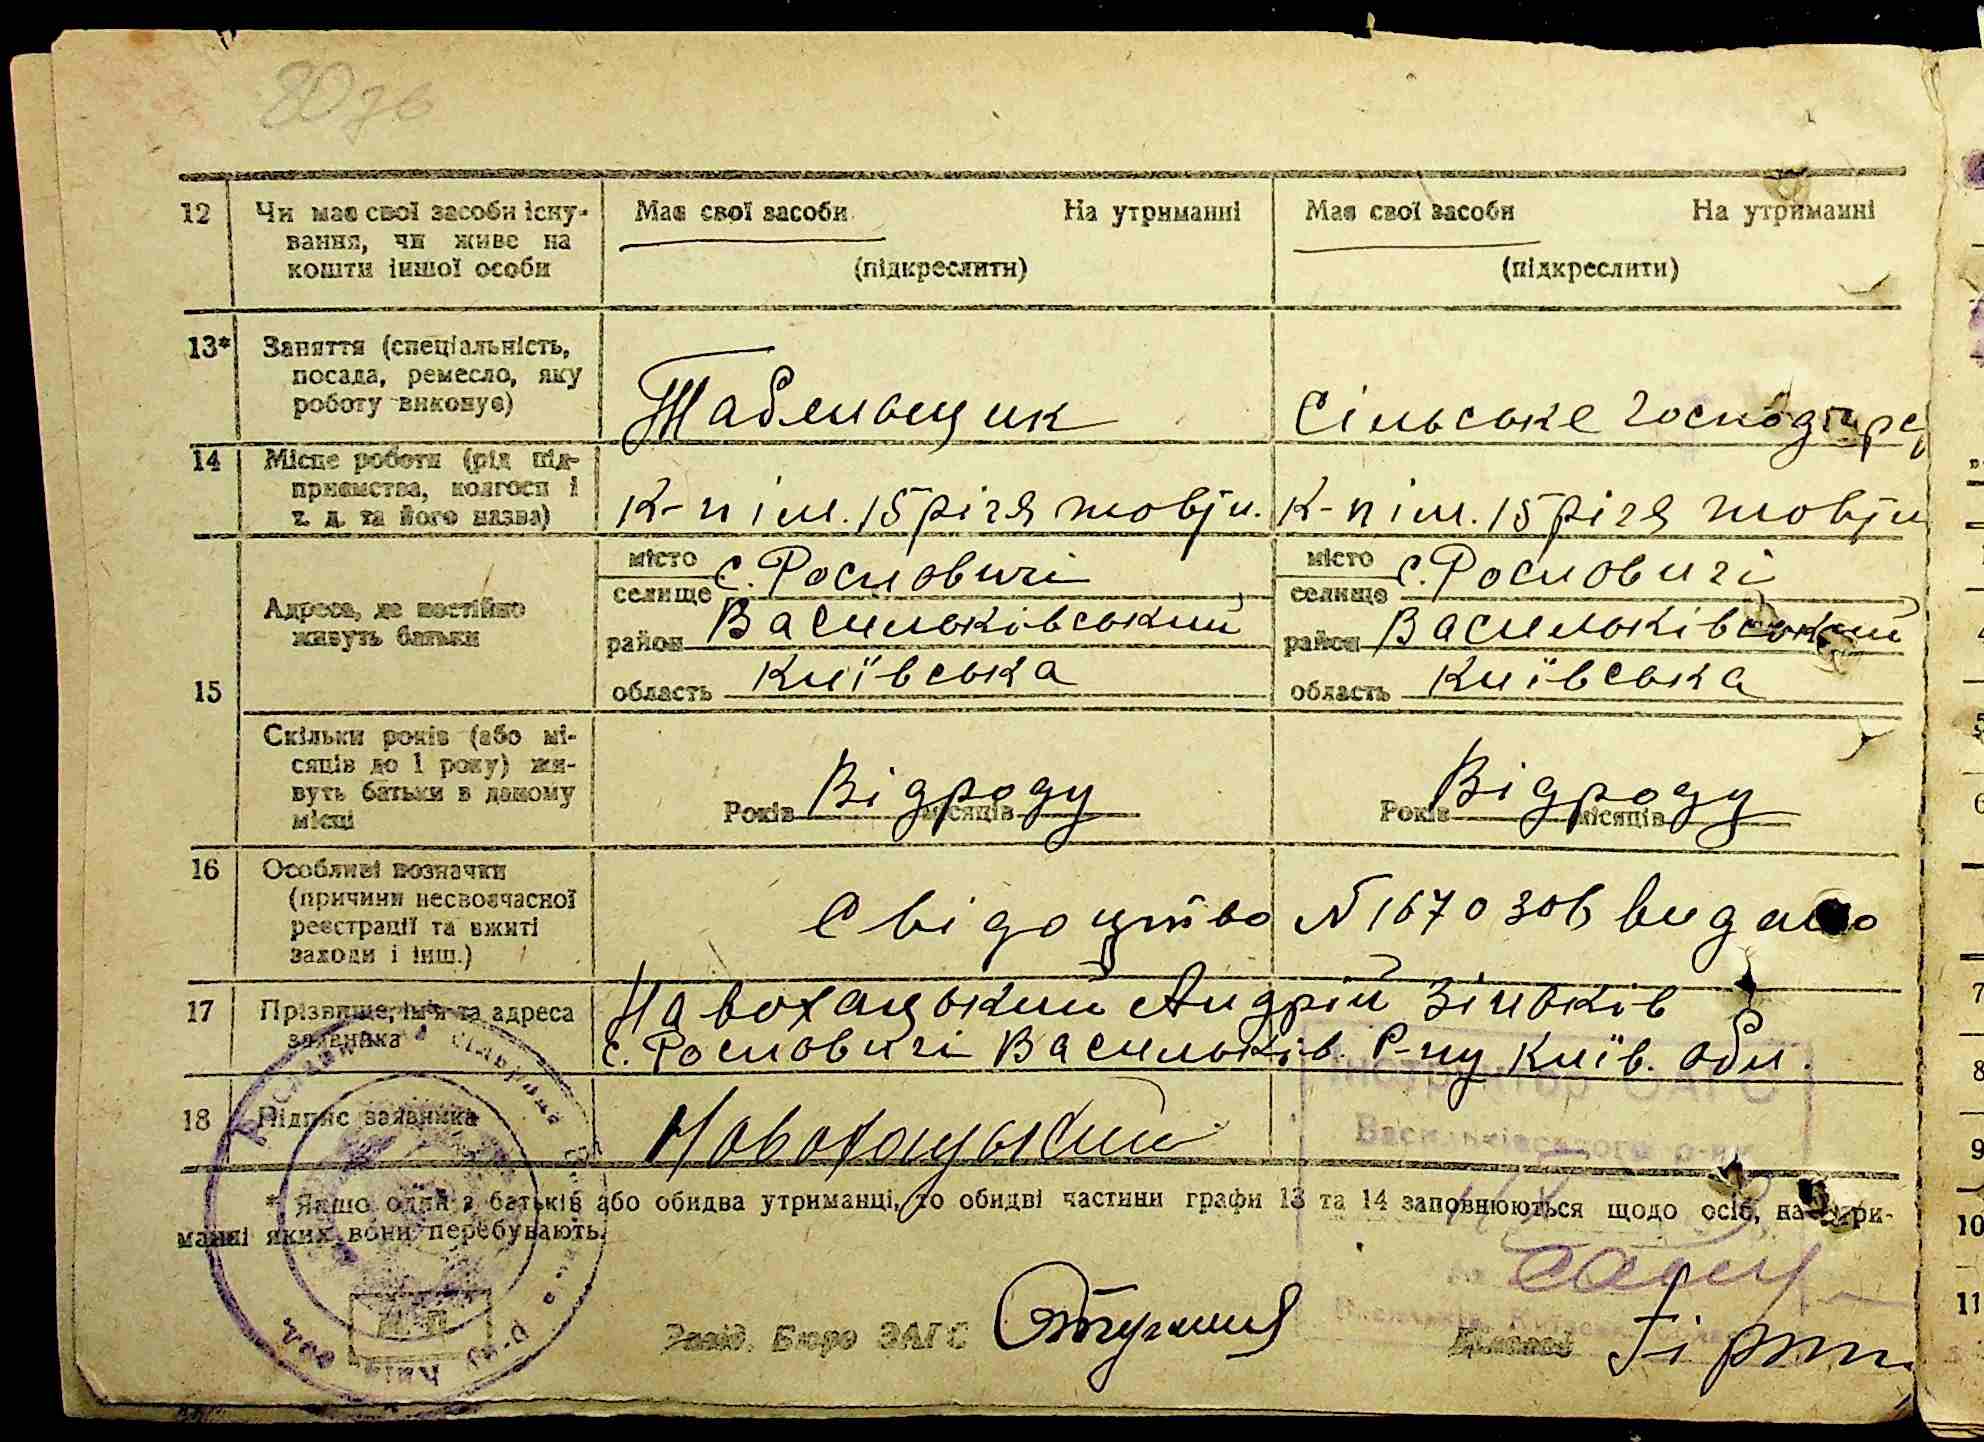 12
Чи має свої засоби існу-
вання, чи живе на
кошти іншої особи
Має свої засоби На утриманні
(підкреслити)
Має свої засоби На утриманні
(підкреслити)
13*
Заняття (спеціальність,
посада, ремесло, яку
роботу виконує)
Табельщик
Сільське господарс
14
Місце роботи (рід під-
приємства, колгосп і
т. д. та його назва)
К-п ім. 15 річя жовтн.
К-п ім. 15 річя жовтн
15
Адреса, де постійно
живуть батьки
місто
селище с. Рословичі
район Васильківський
область Київська
місто
селище с. Рословичі
район Васильківський
область Київська
Скільки років (або мі-
сяців до 1 року) жи-
вуть батьки в даному
місці
Років Відроду місяців
Років Відроду місяців
16
Особливі позначки
(причини несвоєчасної
реєстрації та вжиті
заходи і інш.)
Свідоцтво N 167030в видано
17
Прізвище, ім'я та адреса
заявника
Новохацький Андрій Зіньків
с. Рословичі Васильків. Р-ну Київ. обл.
18
Підпис заявника
Новохацький
* Якщо один з батьків або обидва утриманці, то обидві частини графи 13 та 14 заповнюються щодо осіб, на утри-
манні яких вони перебувають.
Інструктор ЗАГС
Васильківського р-ну
М. П.
Завід. Бюро ЗАГС
Діловод